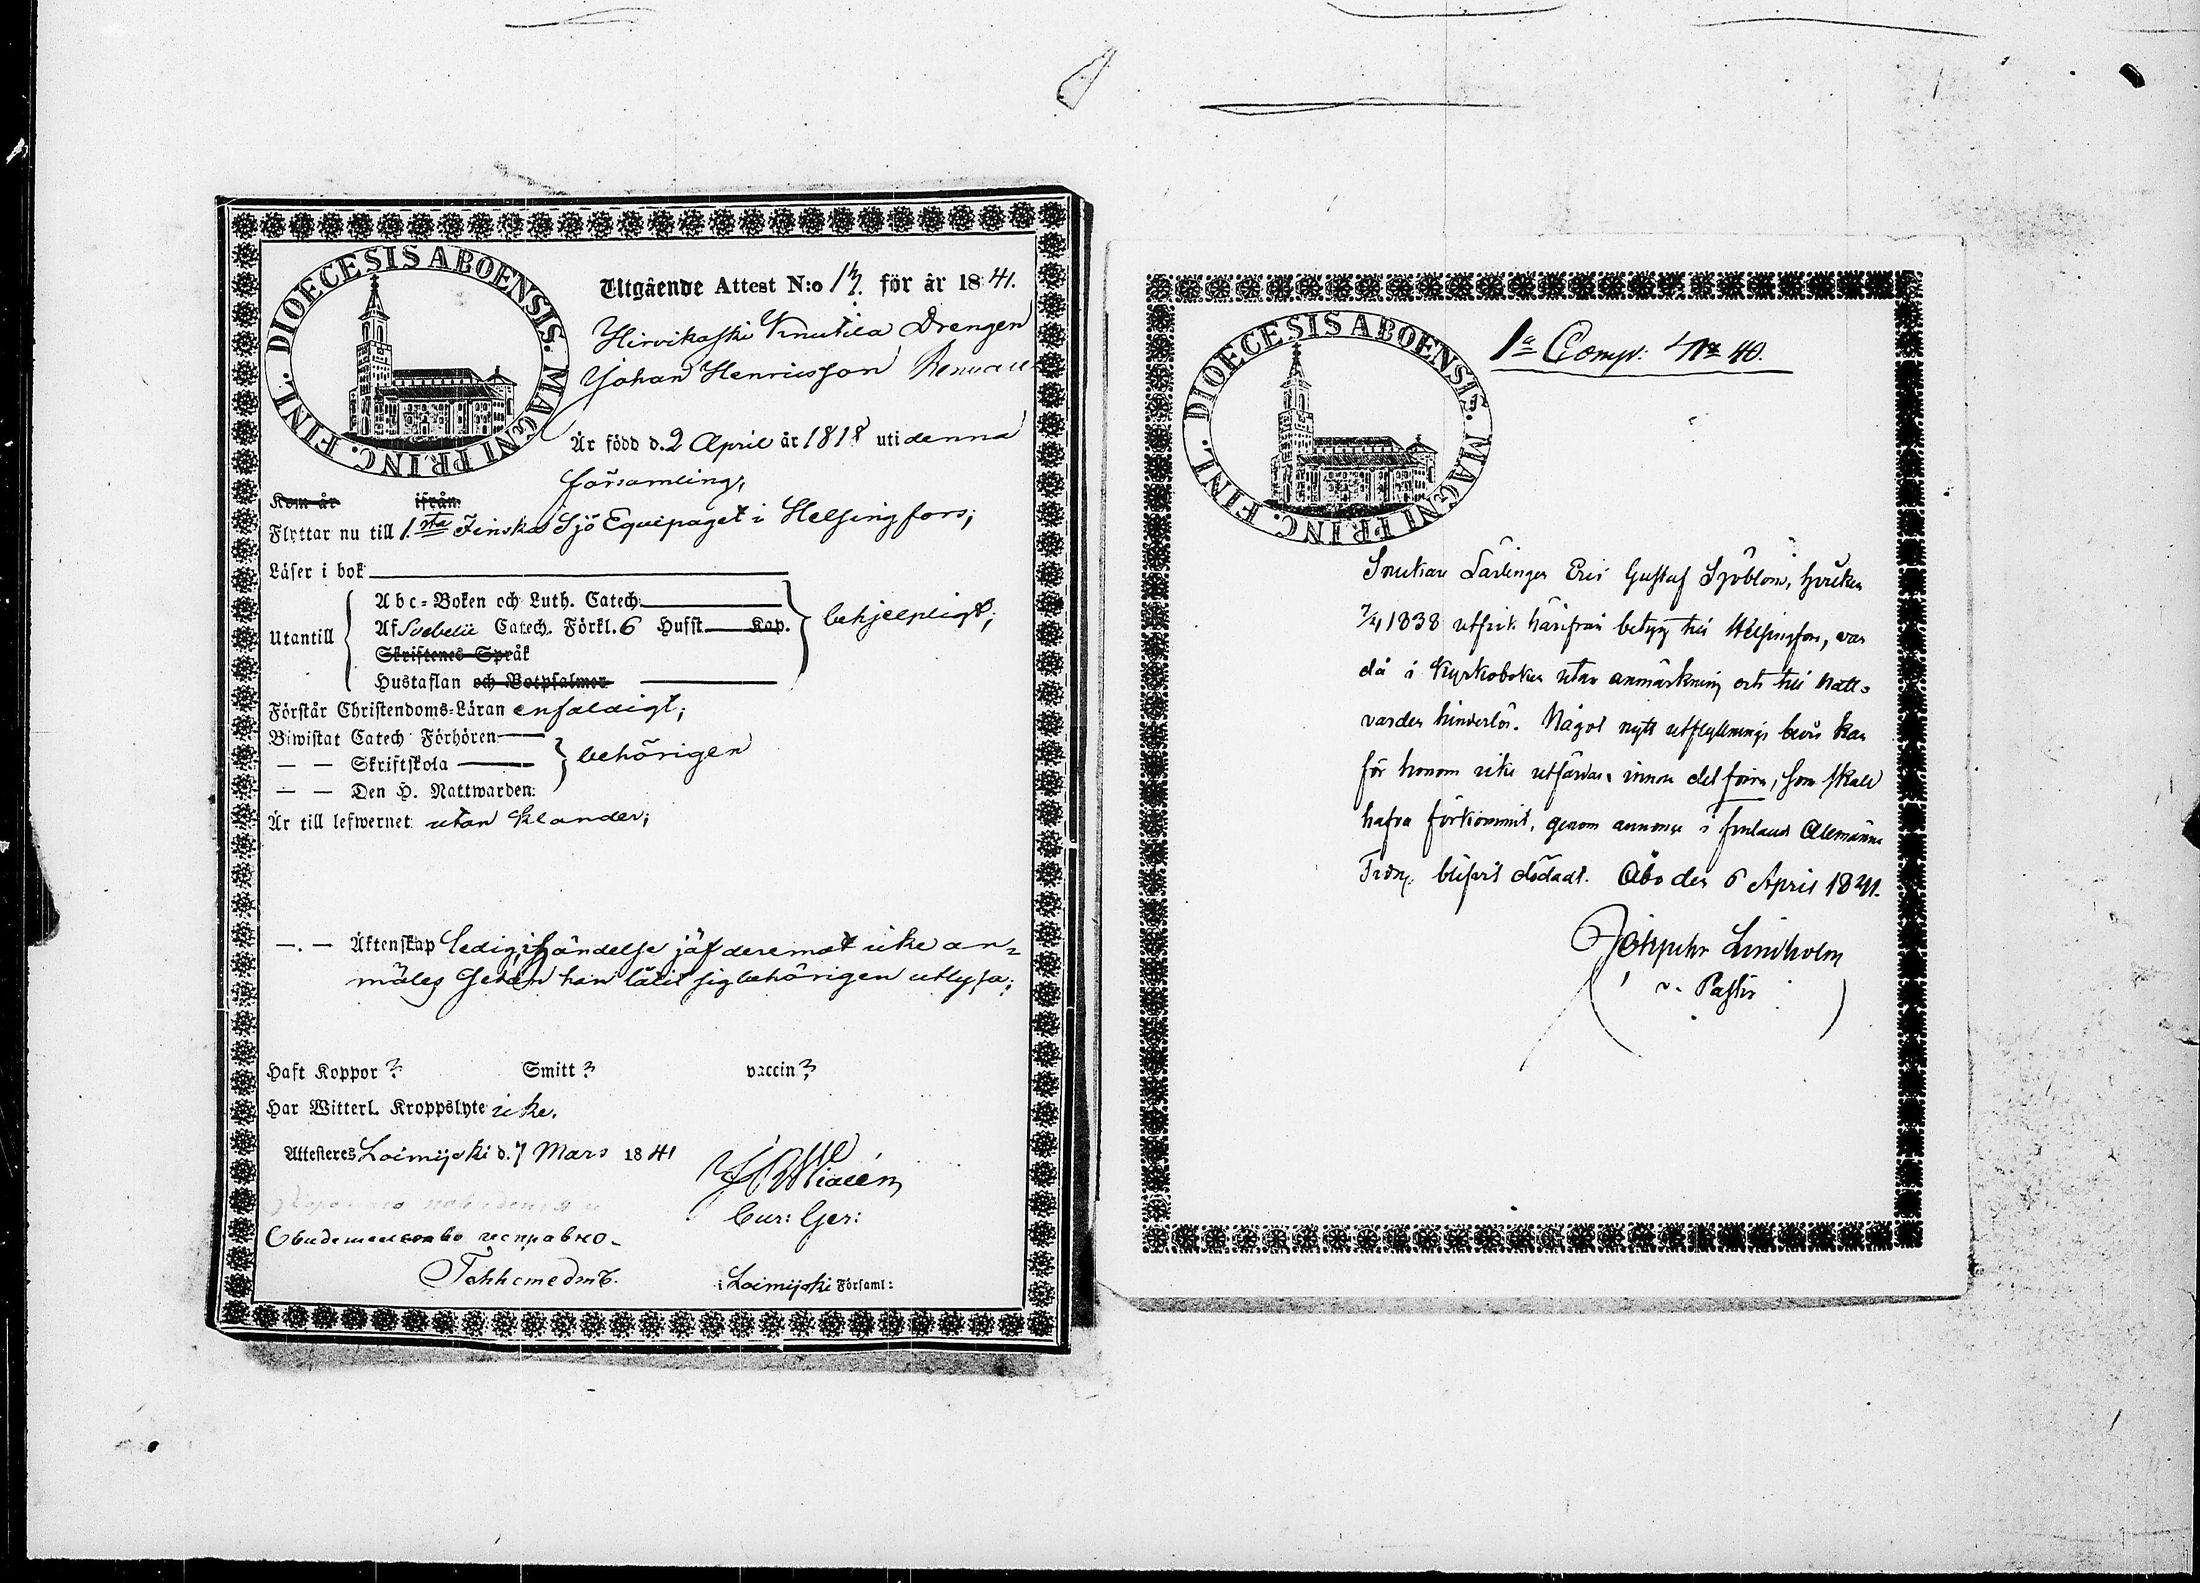 DIOECESIS ABOENSIS. MAGNI PRINC. FINL.
Utgående Attest N:o för år 1841.
Hirvikoski Knutila Drengen
Johan Henricsson
Är född d. 2 April år 1818 uti denna
församling;
Kom år ifrån
Flyttar nu till 1.sta Finska Sjö Equipaget i Helsingfors;
Läser i bok
Utantill
Abc-Boken och Luth. Catech.
Af Svebelii Catech. Förkl. 6 Hufst. Kap.
Skriftenes Språk
Hustaflan och Botpsalmer
behjelpligt;
Förstår Christendoms-Läran enfaldigt;
Biwistat Catech Förhören
— — Skriftskola
— — Den H. Nattwarden:
behörigen
Är till lefwernet utan klander;
—.— Äktenskap ledig, i händelse jäf deremot icke an-
mäles sedan han låtit sig behörigen utlysa;
Haft Koppor ? Smitt ? vaccin ?
Har Witterl. Kroppslyte icke.
Attesteras Loimijoki d. 7 Mars 1841
Cur: Ger:
Свидетельство исправно
i Loimijoki Församl:
DIOECESIS ABOENSIS. MAGNI PRINC. FINL.
1a Comp: No 40.
Snickare Lärlingen Eric Gustaf Sjöblom, hvilken
7/4 1838 utfick härifrån betyg till Helsingfors, var
då i Kyrkoboken utan anmärkning och till Natt-
varden hinderlös. Något nytt utflyttnings bevis kan
för honom icke utfärdas, innan det förra, som skall
hafva förkommit, genom annonce i Finlands Allmänna
Tidn. blifvit dödadt. Åbo den 6 April 1841.
Lindholm
v. Pastor